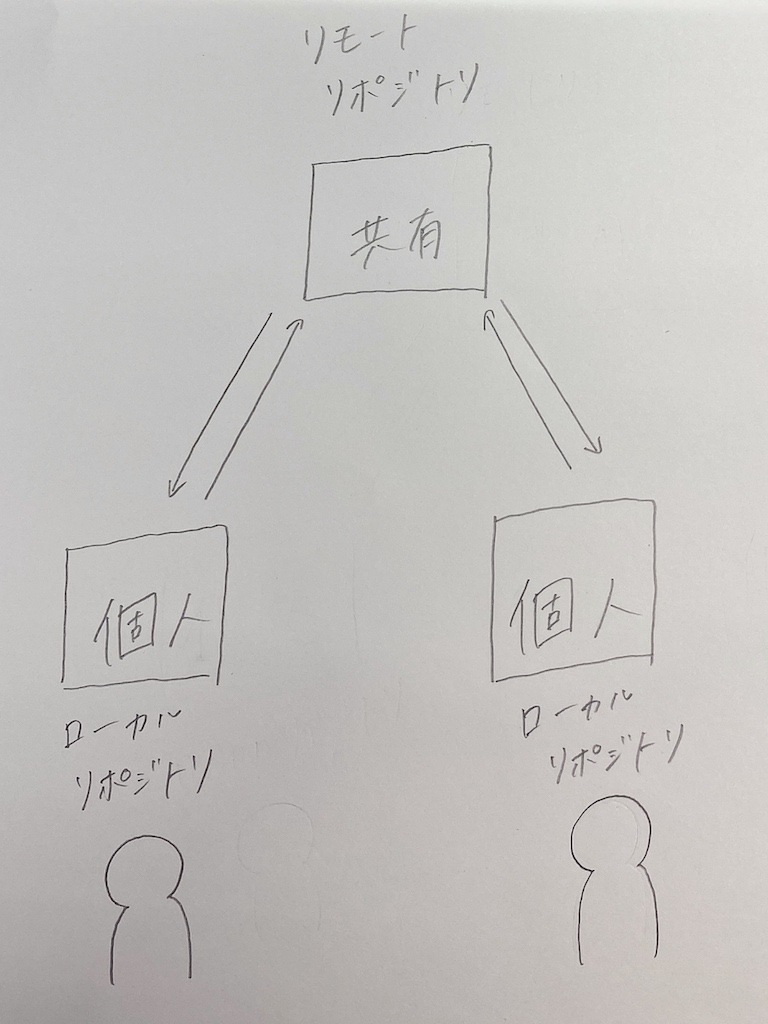 リモート
リポジトリ
共有
個人
ローカル
リポジトリ
個人
ローカル
リポジトリ